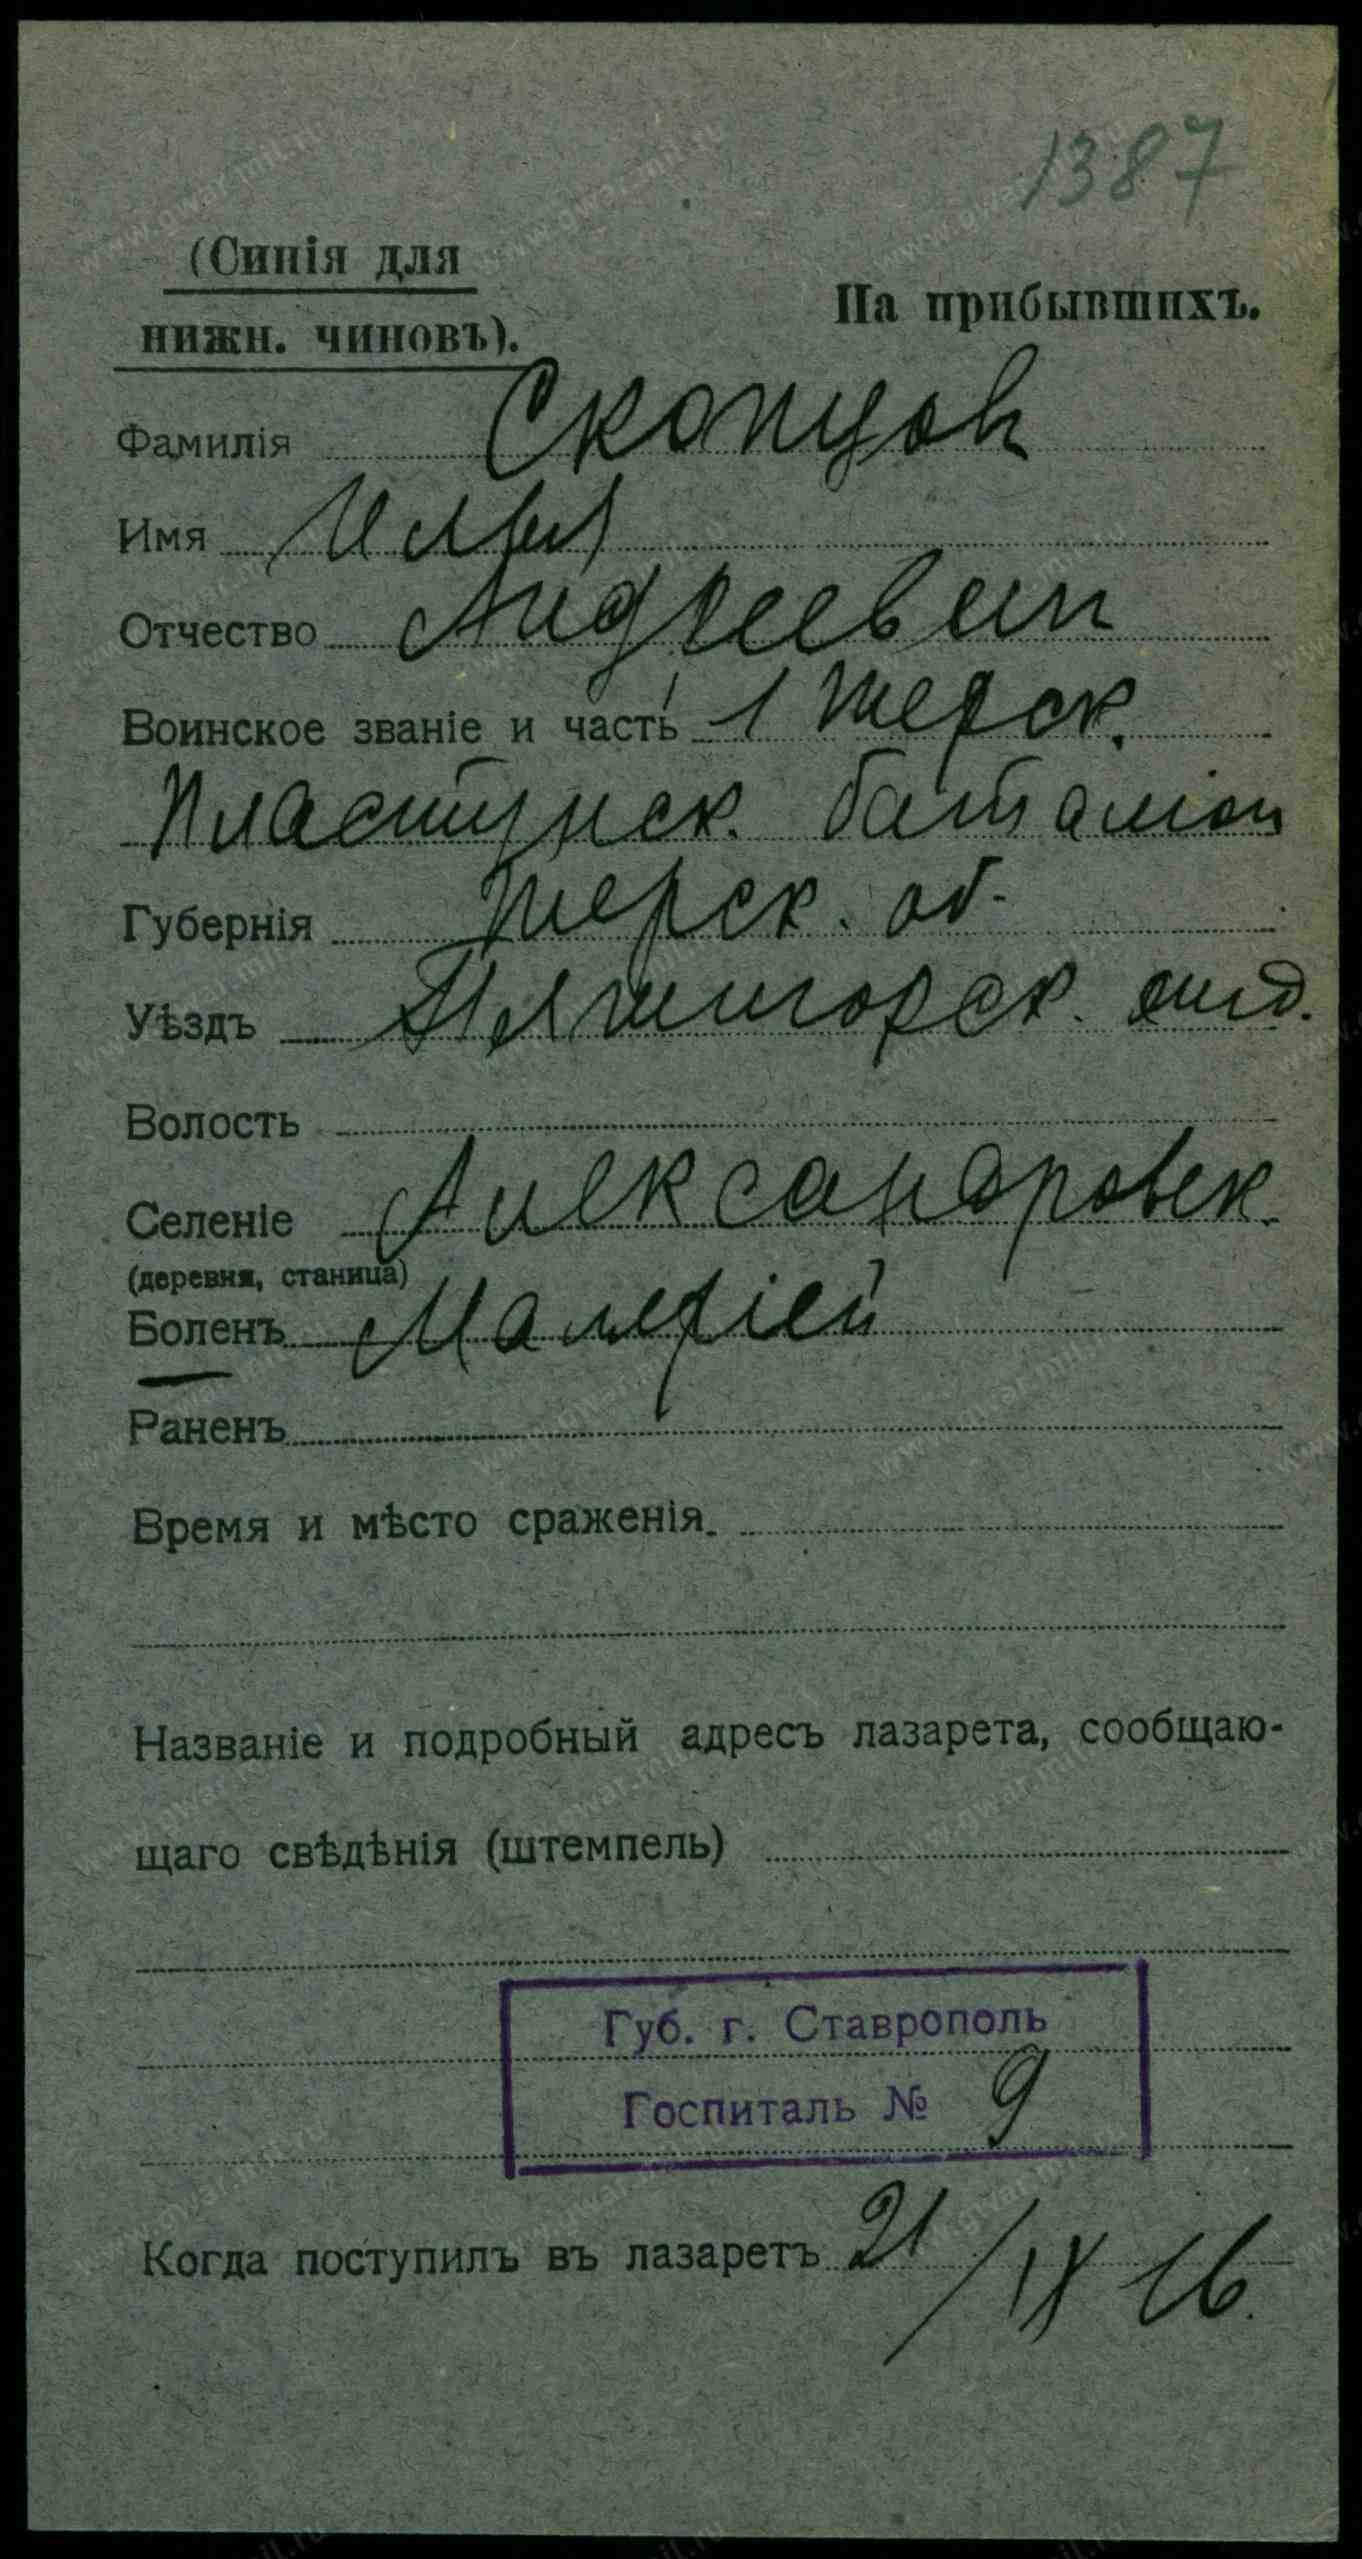 1387
(Синія для
нижн. чиновъ).
На прибывшихъ.
Фамилія Скопцов
Имя Илья
Отчество Андреевич
Воинское званіе и часть 1 Терск.
Пластунск. баталіон
Губернія Терск. об.
Уѣздъ Пятигорск. отд.
Волость
Селеніе Александровск.
(деревня, станица)
Боленъ Маляріей
Раненъ
Время и мѣсто сраженія.
Названіе и подробный адресъ лазарета, сообщаю-
щаго свѣдѣнія (штемпель)
Губ. г. Ставрополь
Госпиталь № 9
Когда поступилъ въ лазаретъ 21/IX 16.